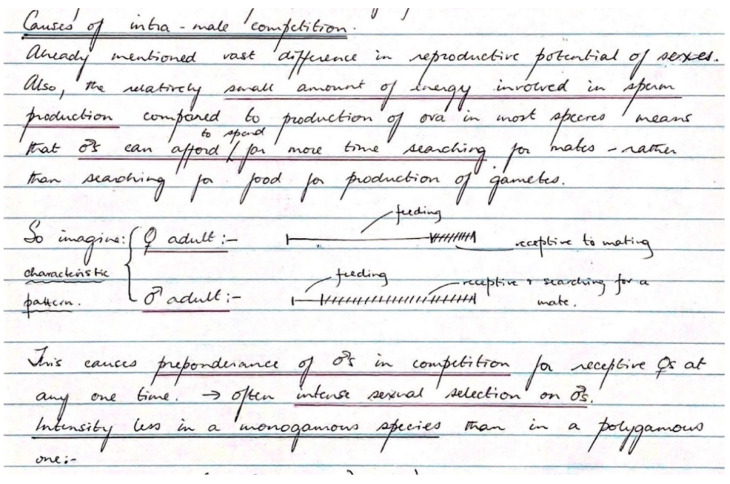 Causes of intra-male competition.
Already mentioned vast difference in reproductive potential of sexes.
Also, the relatively small amount of energy involved in sperm
production compared to production of ova in most species means
to spend
that ♂s can afford / far more time searching for mates – rather
than searching for food for production of gametes.
feeding
So imagine: { ♀ adult :– receptive to mating
characteristic feeding receptive & searching for a
pattern. ♂ adult :– mate.
This causes preponderance of ♂s in competition for receptive ♀s at
any one time. → often intense sexual selection on ♂s.
Intensity less in a monogamous species than in a polygamous
one:–